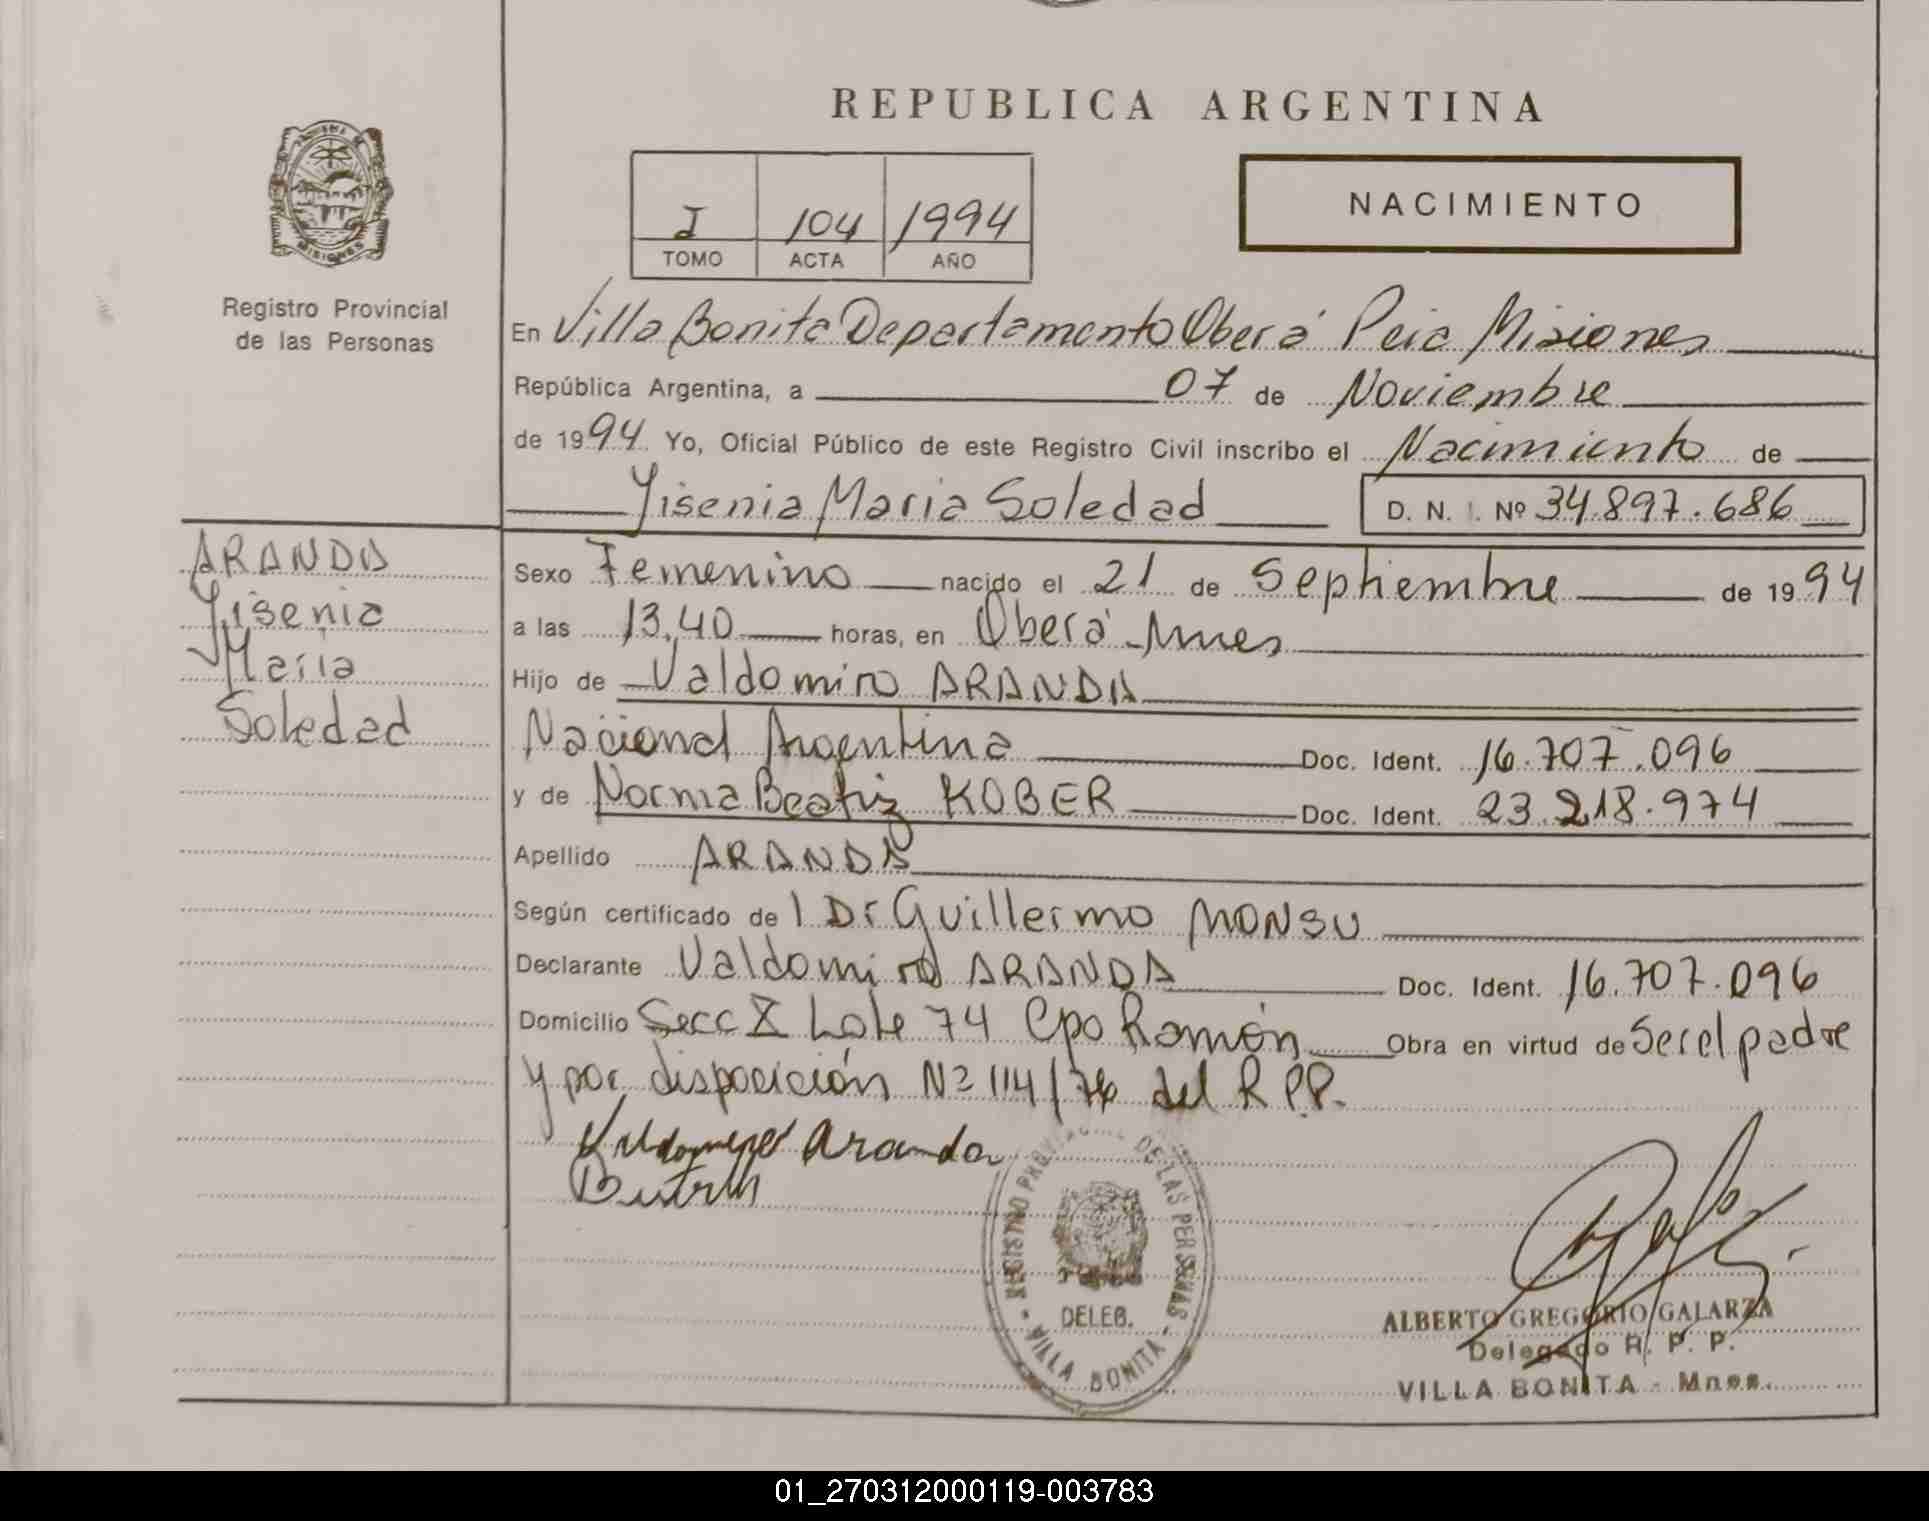 REPUBLICA ARGENTINA
MISIONES
Registro Provincial
de las Personas
I 104 1994
TOMO ACTA AÑO
NACIMIENTO
En Villa Bonita Departamento Oberá Pcia Misiones
República Argentina, a 07 de Noviembre
de 1994 Yo, Oficial Público de este Registro Civil inscribo el Nacimiento de
Yisenia Maria Soledad D. N. I. Nº 34.897.686
ARANDA
Yisenia
Maria
Soledad
Sexo Femenino nacido el 21 de Septiembre de 1994
a las 13,40 horas, en Oberá Mnes
Hijo de Valdomiro ARANDA
Nacional Argentina Doc. Ident. 16.707.096
y de Norma Beatriz KOBER Doc. Ident. 23.218.974
Apellido ARANDA
Según certificado de l Dr Guillermo MONSU
Declarante Valdomiro ARANDA Doc. Ident. 16.707.096
Domicilio Secc X Lote 74 Cpo Ramón Obra en virtud de Ser el padre
y por disposición Nº 114/76 del R P.P.
Aranda
REGISTRO PROVINCIAL DE LAS PERSONAS
DELEB.
- VILLA BONITA -
ALBERTO GREGORIO GALARZA
Delegado R. P. P.
VILLA BONITA - Mnes.
01_270312000119-003783